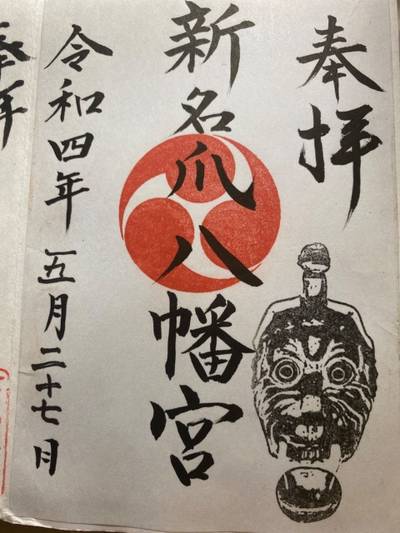 奉拝
新名爪八幡宮
令和四年五月二十七月
奉拝